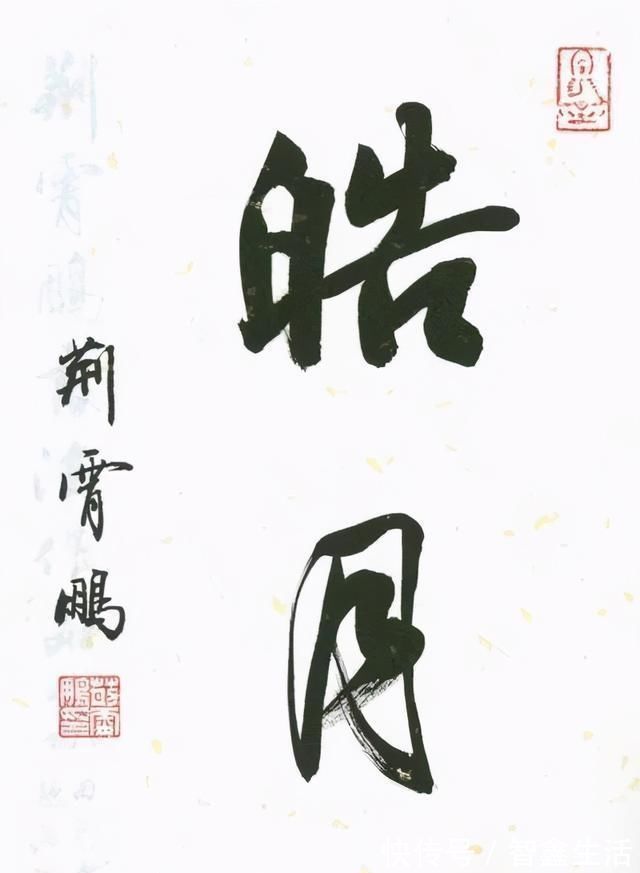 皓月
荆霄鹏
快传号/智鑫生活